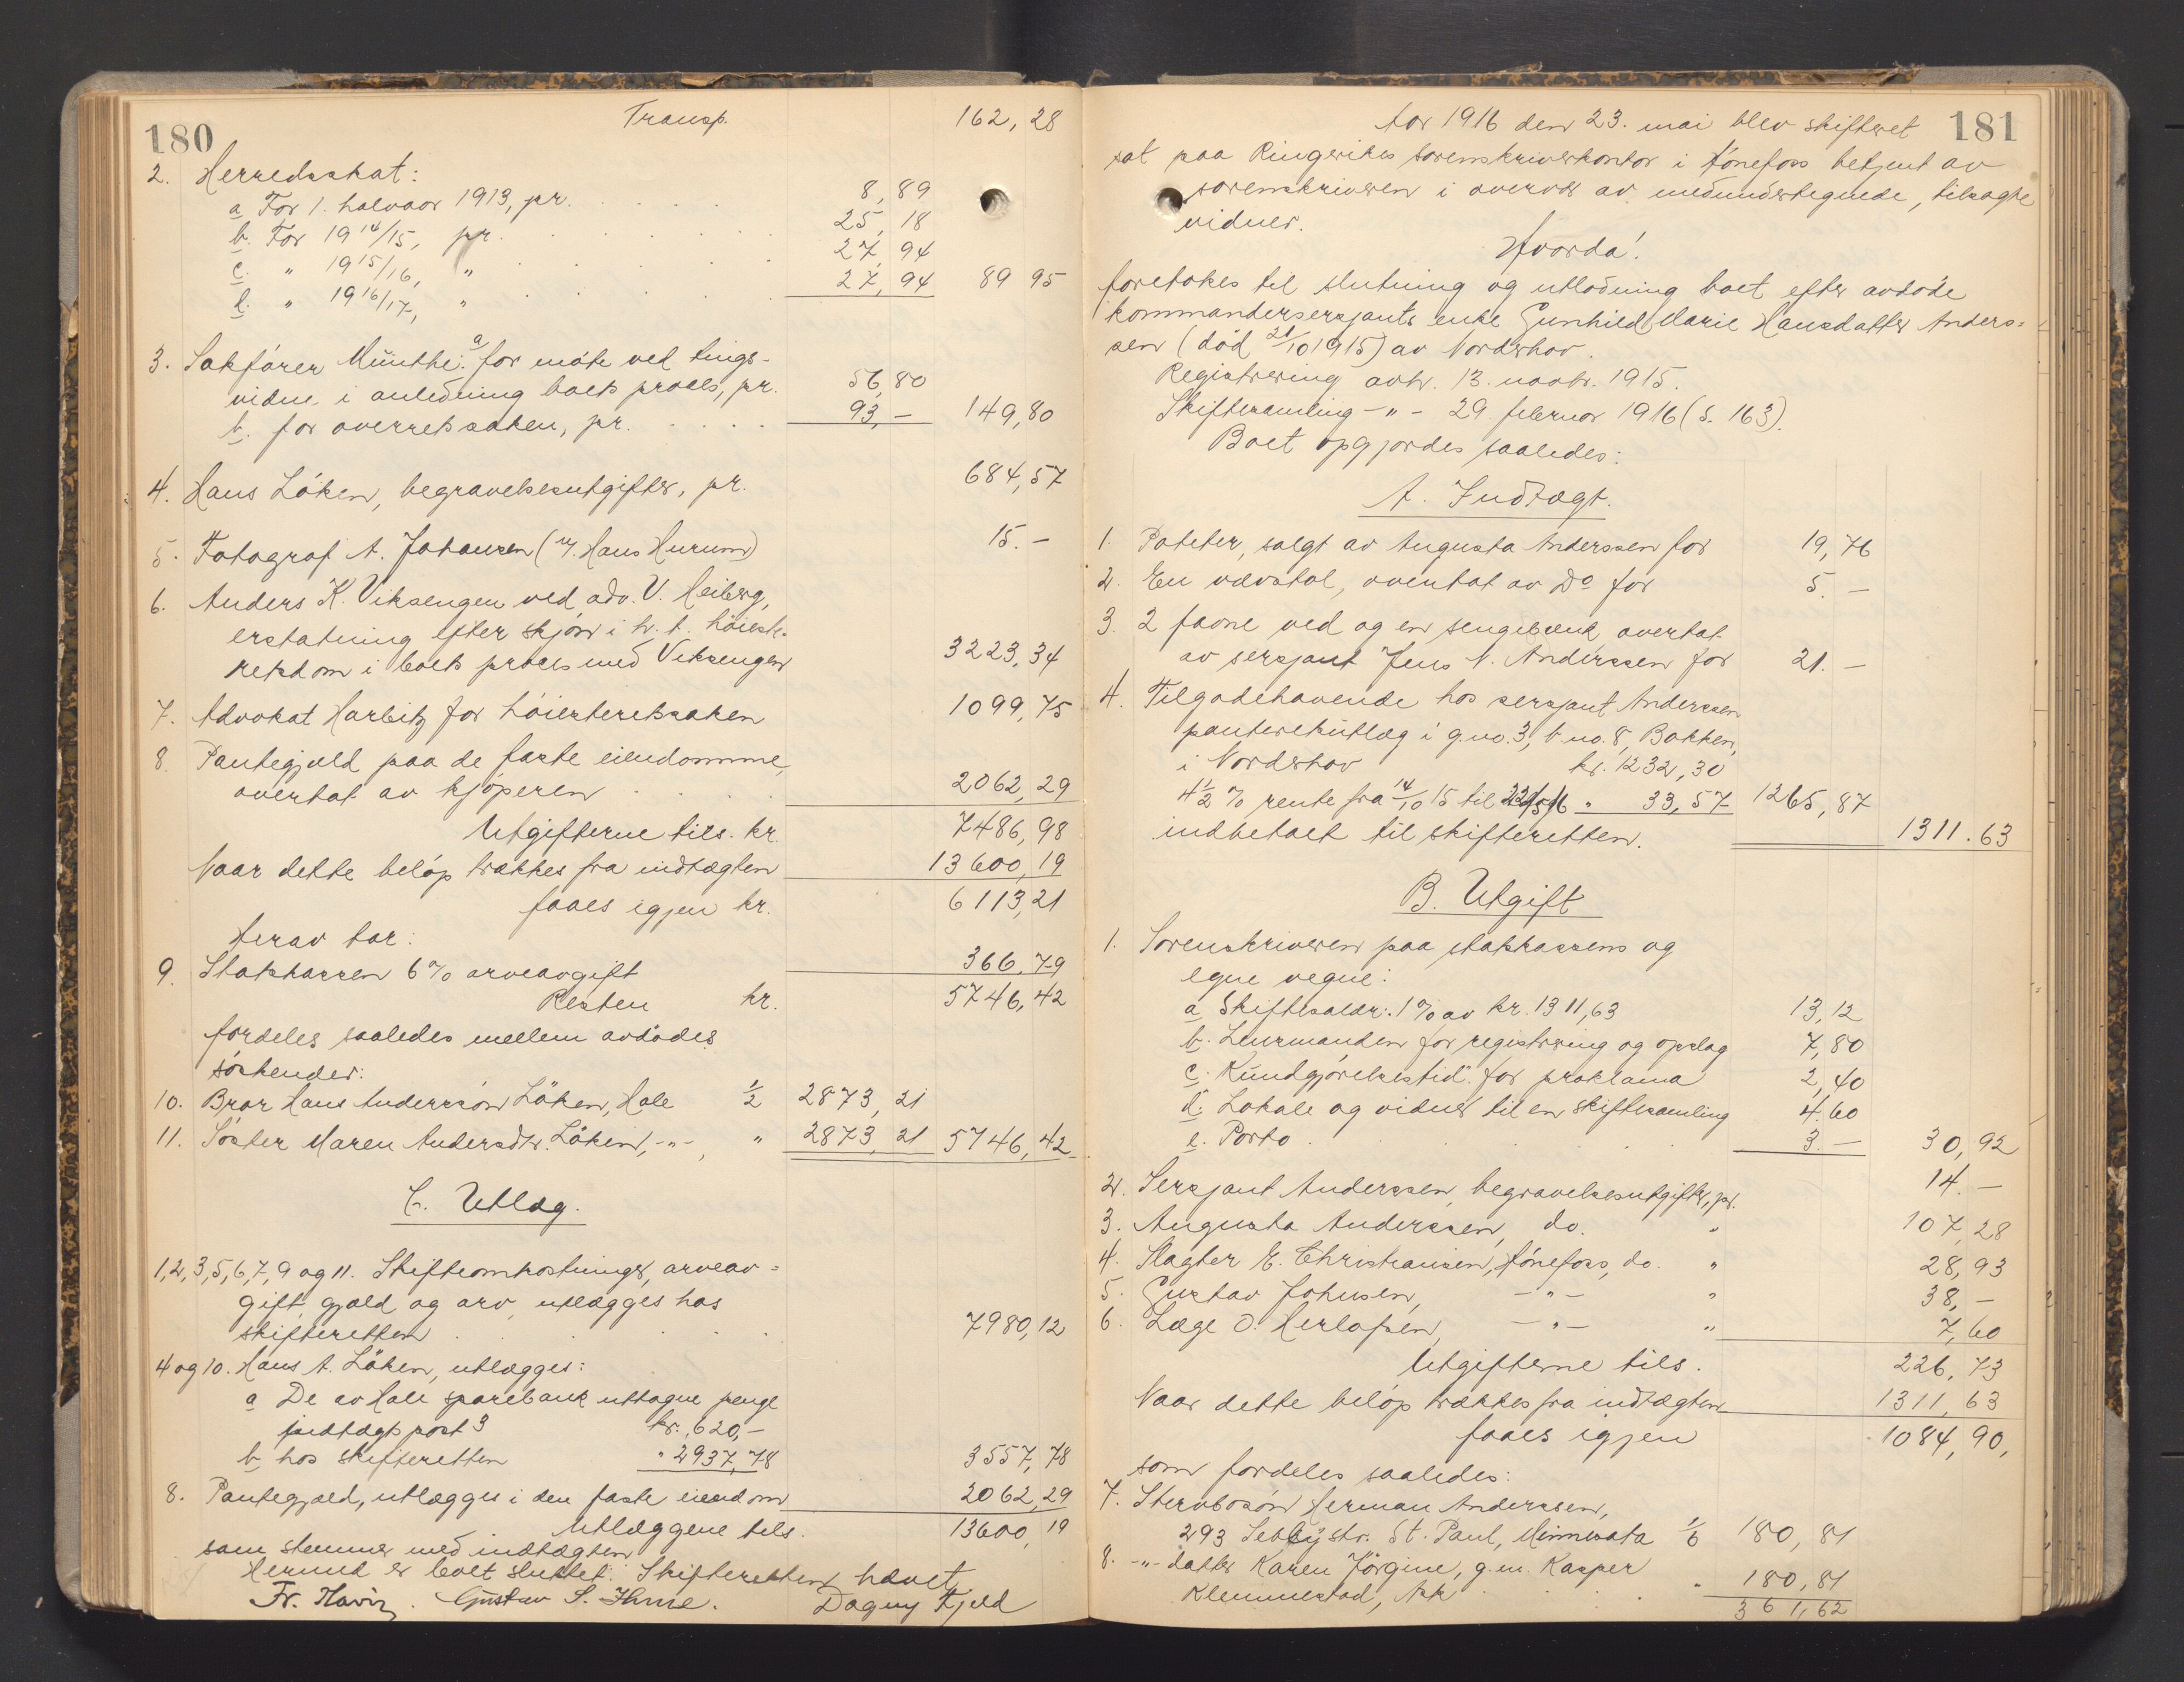 180
Transp. 162,28
2. Herredsskat:
a For 1. halvaar 1913, pr. 8,89
b. For 1914/15, pr. 25,18
c. " 1915/16, " 27,94
d. " 1916/17, " 27,94 89 95
3. Sakförer Münthe: a for möte ved tings-
vidne i anledning boets proces, pr. 56,80
b. for overretssaken, pr. 93,- 149,80
4. Hans Löken, begravelsesutgifter, pr. 684,57
5. Fotograf A. Johansen (v. Hans Hurum) 15.-
6. Anders K. Viksengen ved adv. V. Heiberg,
erstatning efter skjön i h. t. höieste-
retsdom i boets proces med Viksengen 3223,34
7. Advokat Harbitz for höiesteretssaken 1099,75
8. Pantegjæld paa de faste eiendomme,
overtat av kjöperen 2062,29
Utgifterne tils. kr. 7486,98
Naar dette belöp trækkes fra indtægten 13600,19
faaes igjen kr. 6113,21
Herav tar:
9. Statskassen 6% arveavgift 366,79
Resten kr. 5746,42
fordeles saaledes mellem avdödes
söskender:
10. Bror Hans Anderssön Löken, Hole 1/2 2873,21
11. Söster Maren Andersdtr. Löken, -"-, " 2873,21 5746,42
C. Utlæg.
1,2,3,5,6,7,9 og 11. Skifteomkostninger, arveav-
gift, gjæld og arv, utlægges hos
skifteretten 7980,12
4 og 10. Hans A. Löken, utlægges:
a De av Hole sparebank uttagne penge
indtægtspost 3 kr. 620,-
b. hos skifteretten " 2937,78 3557,78
8. Pantegjæld, utlægges i den faste eiendom 2062,29
Utlæggene tils. 13600,19
som stemmer med indtægten
Hermed er boet sluttet. Skifteretten hævet
Fr. Gustav S. Dagny Fjeld
181
Aar 1916 den 23. mai blev skifteret
sat paa Ringerikes sorenskriverkontor i Hönefoss betjent av
sorenskriveren i overvær av medundertegnede, tilsagte
vidner.
Hvorda!
foretokes til slutning og utlodning boet efter avdöde
kommandersersjants enke Gunhild Marie Hansdatter Anders-
sen (död 21/10 1915) av Norderhov.
Registrering avh. 13. novbr. 1915.
Skiftesamling -"- 29 februar 1916 (s. 163).
Boet opgjordes saaledes:
A. Indtægt.
1. Poteter, solgt av Augusta Anderssen for 19,76
2. En vævstol, overtat av Do for 5.-
3. 2 favne ved og en sengebænk overtat
av sersjant Jens N. Anderssen for 21.-
4. Tilgodehavende hos sersjant Anderssen
panteretutlæg i g.no. 3, b.no. 8, Bakken,
i Norderhov kr. 1232,30
4 1/2 % rente fra 14/10 15 til 22/5 16 " 33,57 1265,87
indbetalt til skifteretten. 1311.63
B. Utgift
1. Sorenskriveren paa statskassens og
egne vegne:
a Skiftesalær: 1% av kr. 1311,63 13,12
b. Lensmanden for registrering og opslag 7,80
c. Kundgjörelsestid. for proklama 2,40
d. Lokale og vidner til en skiftesamling 4.60
e. Porto 3.- 30,92
2. Sersjant Anderssen, begravelsesutgifter, pr. 14.-
3. Augusta Anderssen, do. " 107,28
4. Slagter E. Christiansen, Hönefoss, do. " 28,93
5. Gustav Johnsen, -"- " 38,-
6. Læge O. Herlofsen, -"- " 7,60
Utgifterne tils. 226,73
Naar dette belöp trækkes fra indtægten 1311,63
faaes igjen 1084,90,
som fordeles saaledes:
7. Stervbosön Herman Anderssen,
293 str. St. Paul, Minnesota 1/6 180,81
8. -"- datter Karen Jörgine, g.m. Kasper
Klemmestad, Ask " 180,81
361,62